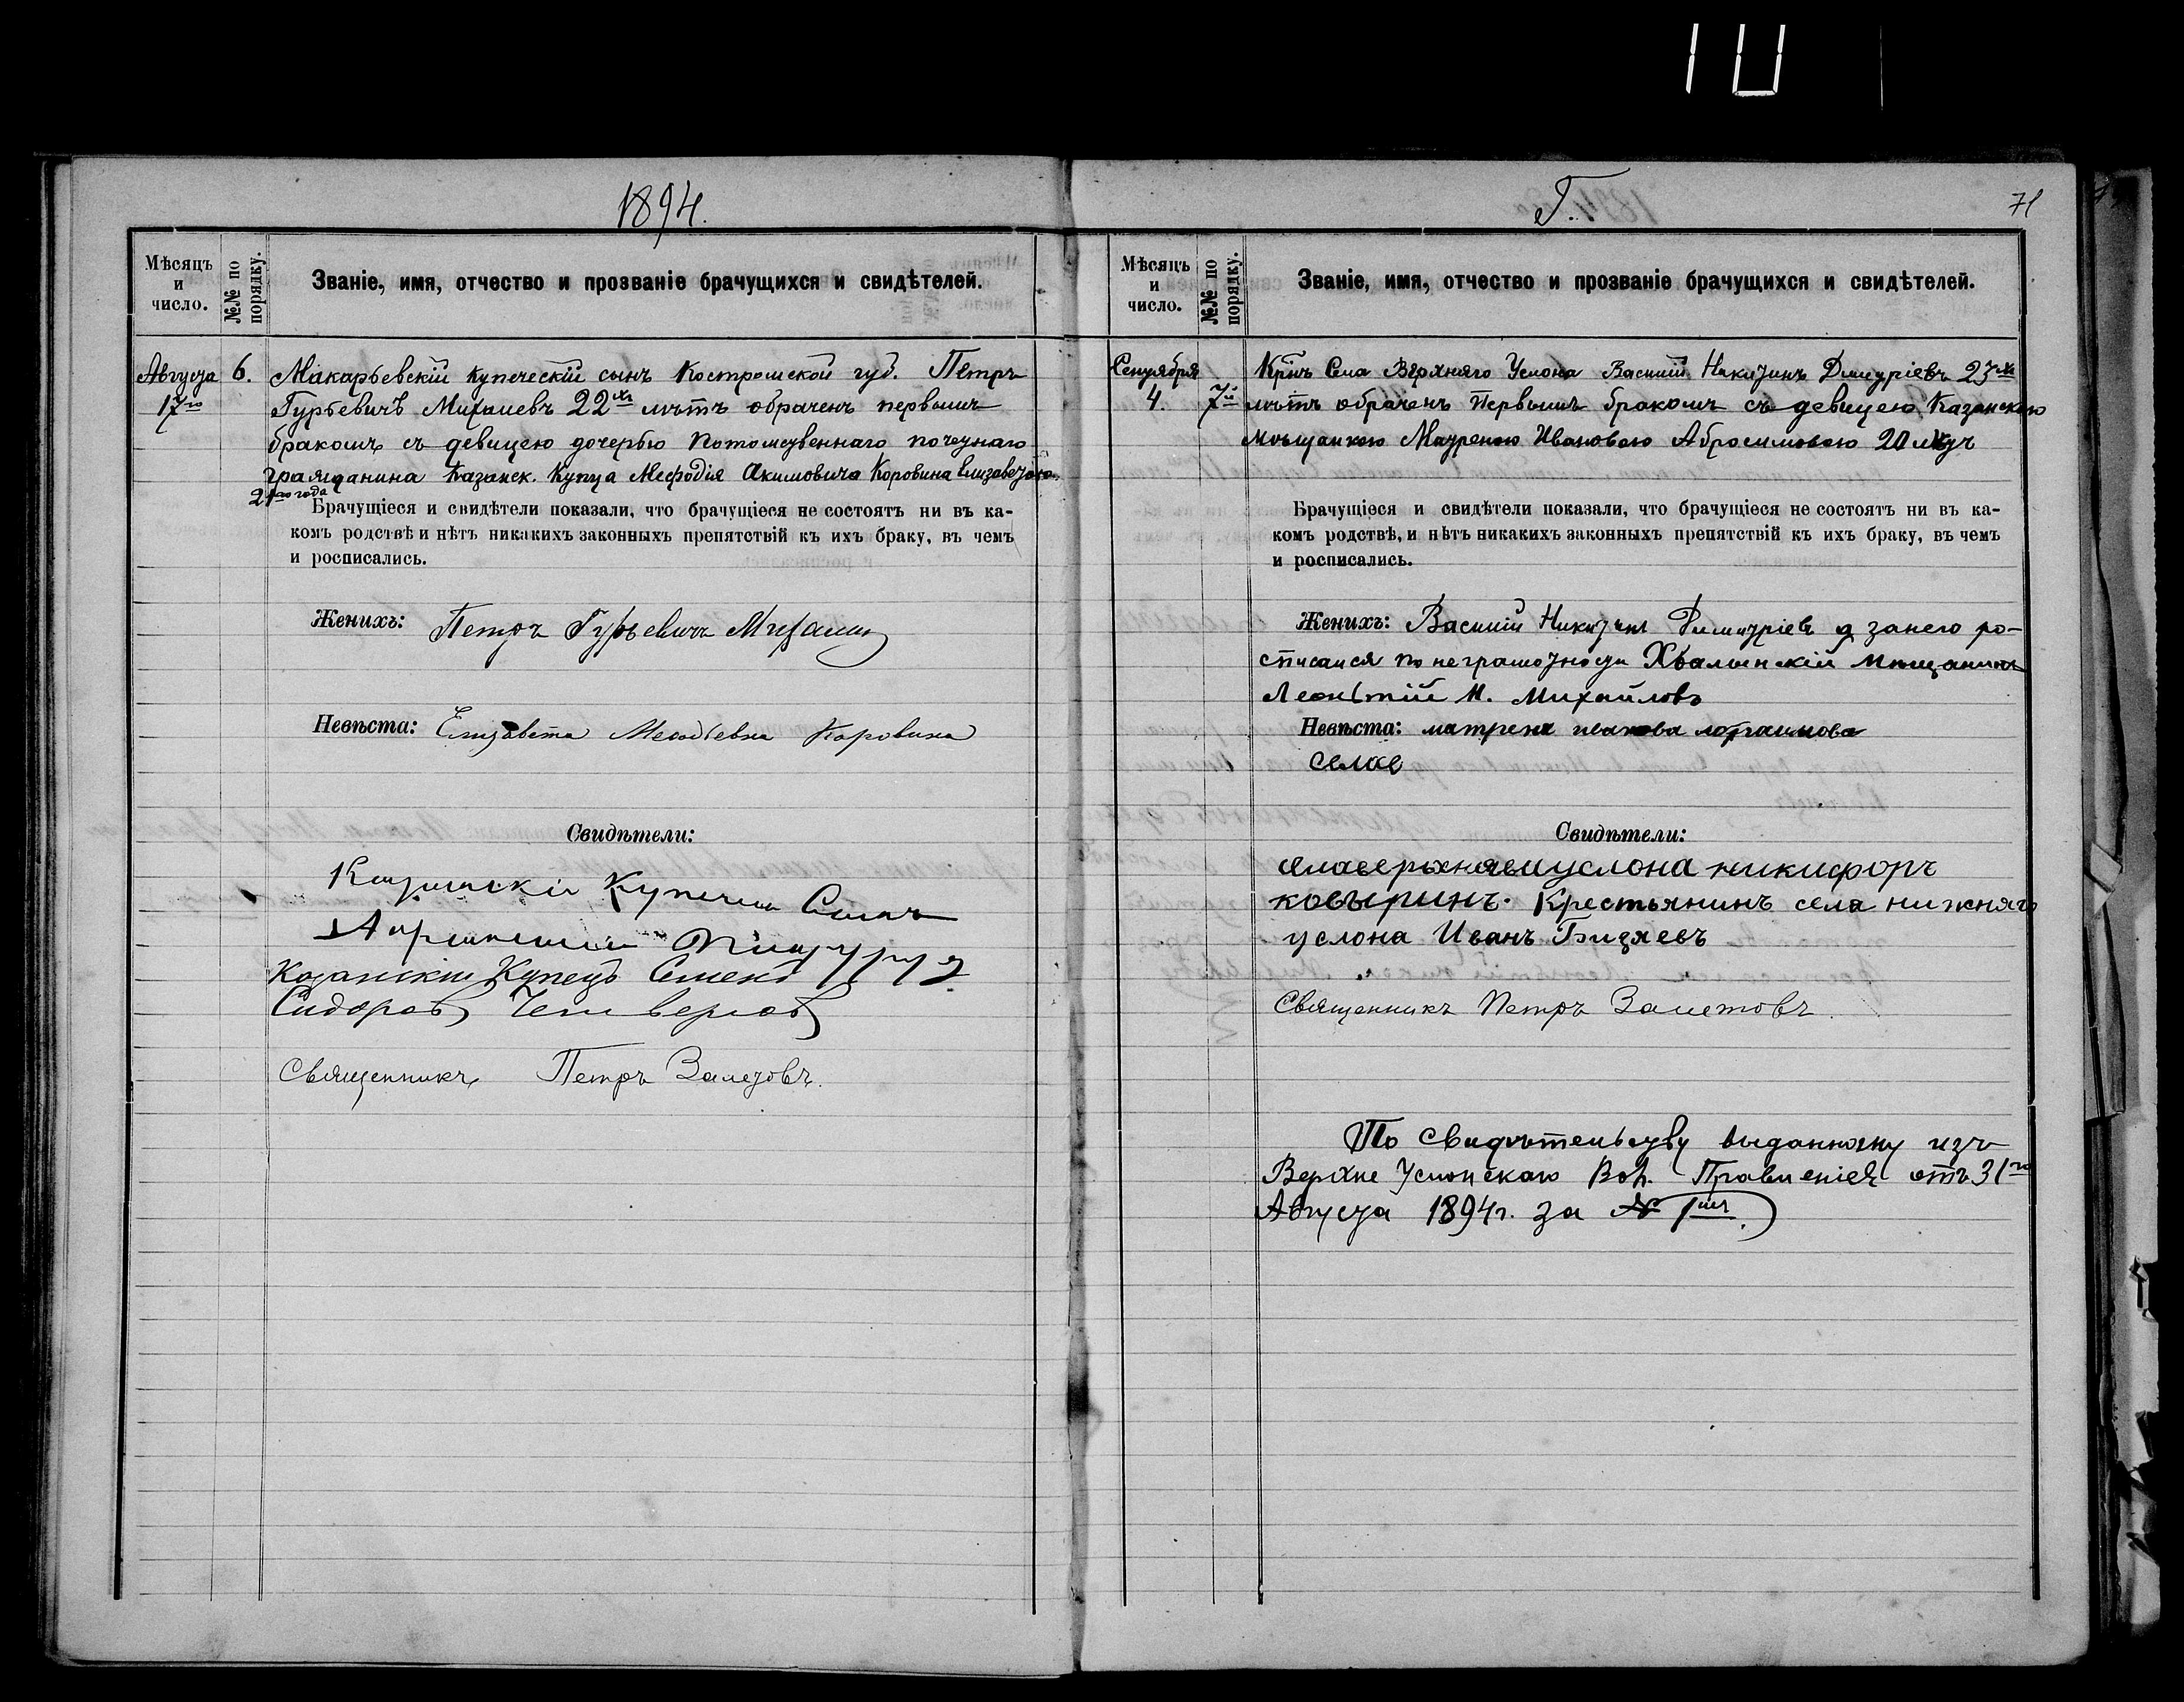 1894.
Мѣсяцъ и число.
№№ по порядку.
Званіе, имя, отчество и прозваніе брачущихся и свидѣтелей.
Августа 17го
6.
Макарьевскій купеческій сынъ Костромской губ. Петръ
Гурьевичъ Михалевъ 22хъ лѣтъ обраченъ первымъ
бракомъ съ девицею дочерью потомственнаго почетнаго
гражданина Казанск. Купца Мефодія Акимовича Коровина Елизаветою
21го года
Брачущіеся и свидѣтели показали, что брачущіеся не состоятъ ни въ ка-
комъ родствѣ и нѣтъ никакихъ законныхъ препятствій къ ихъ браку, въ чемъ
и росписались.
Женихъ: Петръ Гурьевичъ
Невѣста: Елизавета Меодьевна Коровина
Свидѣтели:
Казанскій Купечес Сынъ
Казанскій Купецъ Семенъ
Сидоровъ Четверговъ
Священникъ Петръ Залетовъ.
Г.
71
Мѣсяцъ и число.
№№ по порядку.
Званіе, имя, отчество и прозваніе брачущихся и свидѣтелей.
Сентября 4.
7й
Крнъ Села Верхняго Услона Василій Никитинъ Дмитріевъ 23хъ
лѣтъ обраченъ первымъ бракомъ съ девицею Казанскою
мѣщанкою Матреною Ивановою Абросимовою 20 лѣтъ
Брачущіеся и свидѣтели показали, что брачущіеся не состоятъ ни въ ка-
комъ родствѣ, и нѣтъ никакихъ законныхъ препятствій къ ихъ браку, въ чемъ
и росписались.
Женихъ: Василій Никитинъ Димитріевъ а занего ро-
списался по неграмотности Хвалынскій Мещанинъ
Леонтій М. Михайловъ
Невѣста: матрена иванова
Свидѣтели:
услона никифоръ
ковыринъ. Крестьянинъ села нижняго
услона Иванъ Гридяевъ
Священникъ Петръ Залетовъ.
По свидѣтельству выданному изъ
Верхне Услонскаго Вол. Правленіея отъ 31го
Августа 1894г. за № 1мъ.